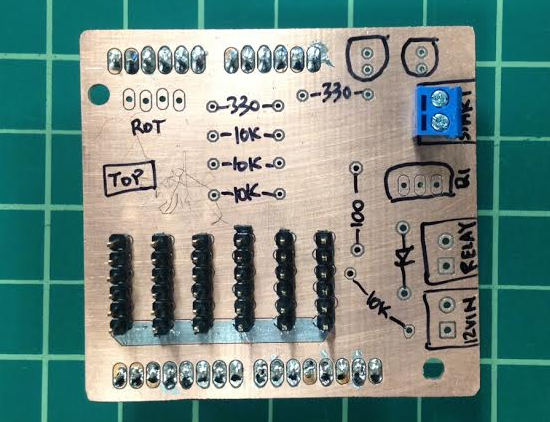 -330-
-330-
ROT
-10K-
-10K-
-10K-
TOP
START
Q1
-100-
RELAY
12VIN